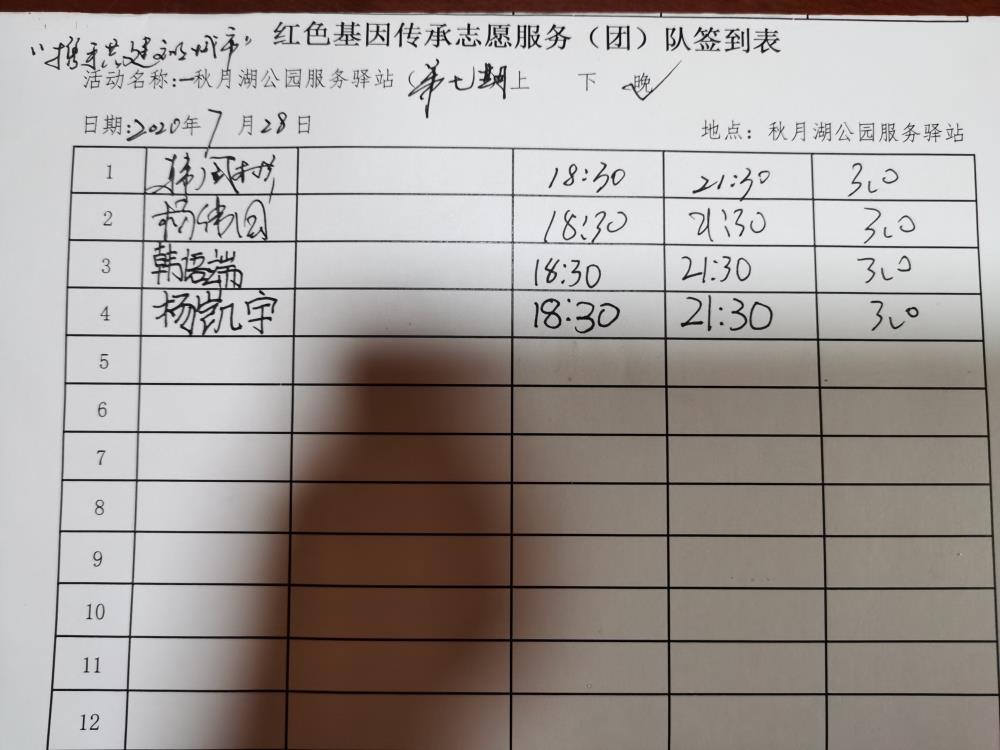 红色基因传承志愿服务（团）队签到表
“携手共建文明城市”
活动名称：秋月湖公园服务驿站（第七期 上 下 晚✓
日期：2020年7月28日 地点：秋月湖公园服务驿站
1 18:30 21:30 3.0
2 杨伟国 18:30 21:30 3.0
3 韩语端 18:30 21:30 3.0
4 杨凯宇 18:30 21:30 3.0
5
6
7
8
9
10
11
12